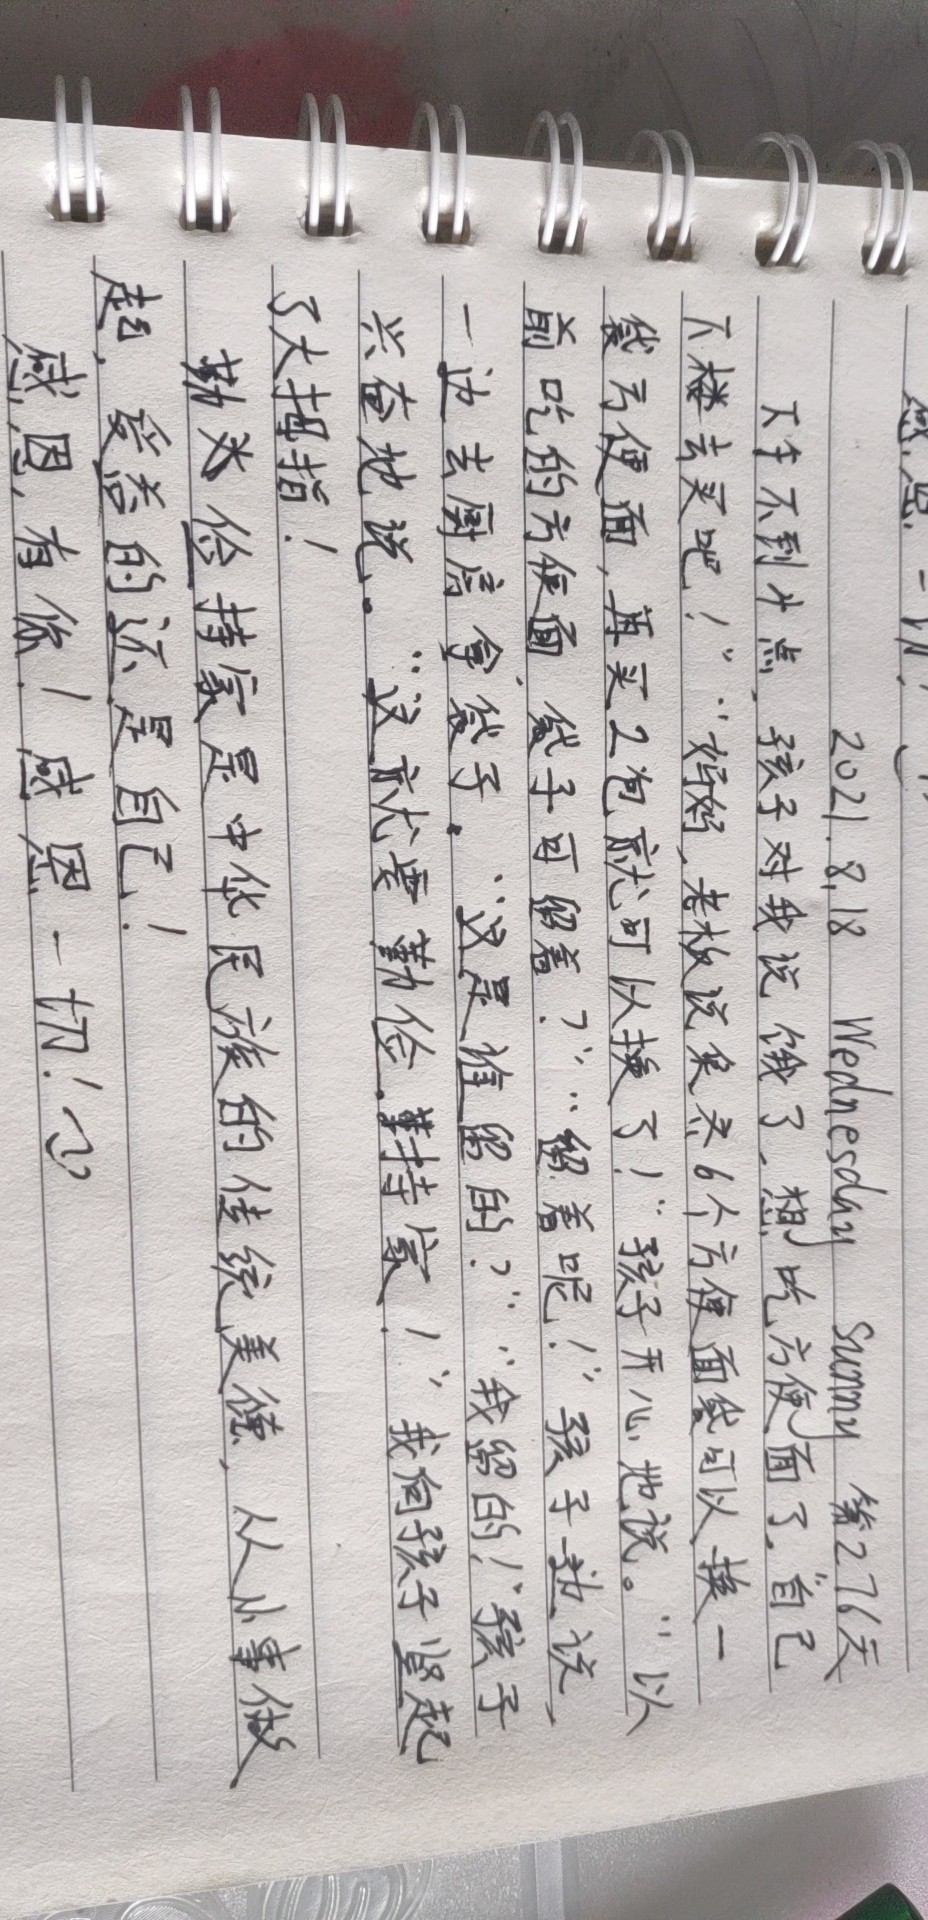 感恩一切!
2021.8.18 Wednesday Sunny 第276天
下午不到十点,孩子对我说饿了,想吃方便面了。“自己
下楼去买吧!”“妈妈,老板说集齐6个方便面袋可以换一
袋方便面,再买2包就可以换了!”孩子开心地说。“以
前吃的方便面袋子可留着?”“留着呢!”孩子一边说,
一边去厨房拿袋子。“这是谁留的?”“我留的!”孩子
兴奋地说。“这就要勤俭持家!”我向孩子竖起
了大拇指!
勤俭持家是中华民族的传统美德,从小事做
起,受益的还是自己!
感恩有你!感恩一切!